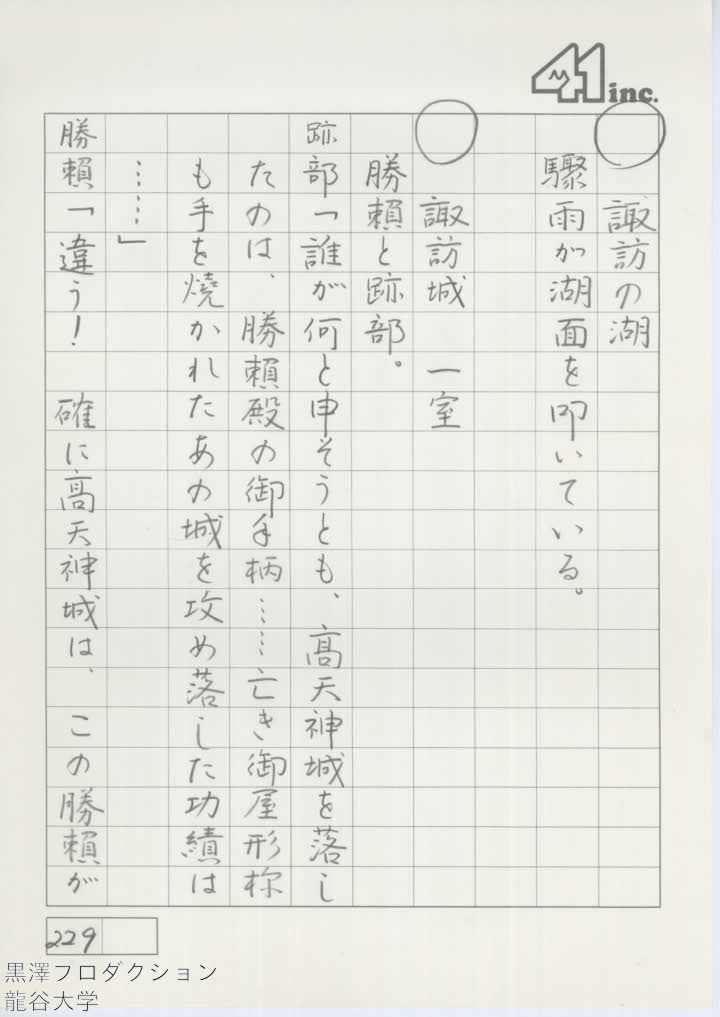 41 inc.
○ 諏訪の湖
驟雨が湖面を叩いている。
○ 諏訪城 一室
勝頼と跡部。
跡部「誰が何と申そうとも、髙天神城を落し
たのは、勝頼殿の御手柄……亡き御屋形様
も手を焼かれたあの城を攻め落した功績は
……」
勝頼「違う! 確に髙天神城は、この勝頼が
229
黒澤プロダクション
龍谷大学